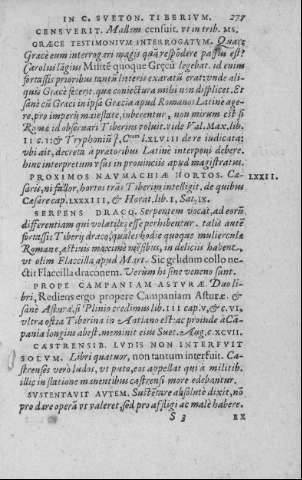 IN C. SVETON. TIBERIVM. 277
CENSVERIT. Mallem censuit. vt in trib. MS.
GRÆCE TESTIMONIVM INTERROGATVM. Quare
Græcè eum interrogari magis quā respōdere passus est?
Carolus Sigius Milité quoque Gręcū legebat. id enim
fortassis prioribus tantū literis exaratū erat. vnde ali-
quis Græcè fecerit. quæ coniectura mihi non displicet. Et
sanè cū Græci in ipsa Græcia apud Romanos Latine age-
re, pro imperij maiestate, iuberentur, non mirum est si
Romæ id obseruari Tiberius voluit. vide Val. Max. lib.
II c. 1: & Tryphoniū
XLVIII dere iudicata;
vbi ait, decreta à prætoribus Latine interponi debere.
hinc interpretum vsus in prouinciis apud magistratus.
PROXIMOS NAVMACHIÆ HORTOS. Cæ- LXXII.
saris, ni fallor, hortos trās Tiberim intelligit, de quibus
Cæsare cap. LXXXIII, & Horat. lib. I, Sat. IX.
SERPENS DRACO. Serpentem vocat, ad eorū
differentiam qui volatiles esse perhibentur. talis autē
fortassis Tiberij draco, quales hodie quoque mulierculæ
Romanæ, æstiuis maxime mēsibus, in deliciis habent,
vt olim Flaccilla apud Mart. Sic gelidum collo ne-
ctit Flaccilla draconem. Verùm hi sine veneno sunt.
PROPE CAMPANIAM ASTVRÆ. Duo li-
bri, Rediens ergo propere Campaniam Asturæ. &
sanè Astura, si Plinio credimus lib. III cap. v, & c. VI,
vltra ostia Tiberina in Antiano est: ac proinde à Cā-
pania longius abest. meminit eius Suet. Aug. c. XCVII.
CASTRENSIB. LVDIS NON INTERFVIT
SOLVM. Libri quatuor, non tantum interfuit. Ca-
strenses verò ludos, vt puto, eos appellat qui à militib.
illic in statione manentibus castrensi more edebantur.
SVSTENTAVIT AVTEM. Sustētare absolutè dixit, nō
pro dare operā vt valeret, sed pro afflígi ac malè habere.
S 3 EX